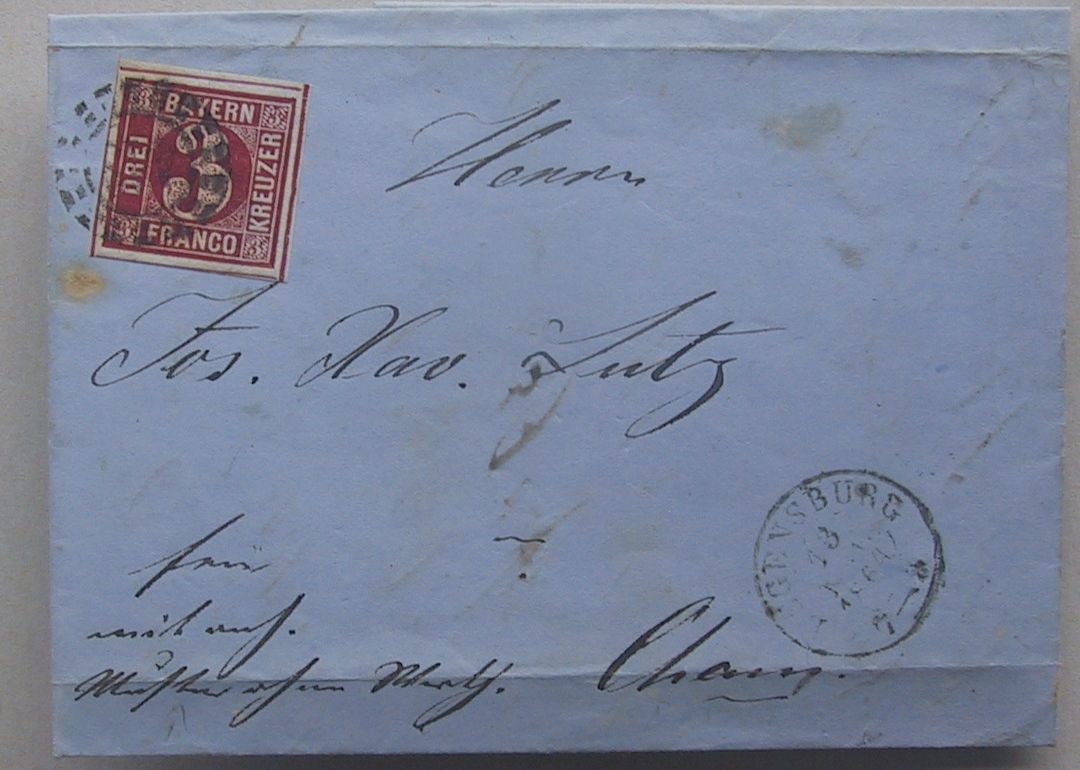 BAYERN
DREI
3
KREUZER
FRANCO
Herrn
Jos. Xav. Lutz
REGENSBURG
13
frei
mit anh.
Muster ohne Werth.
Cham.